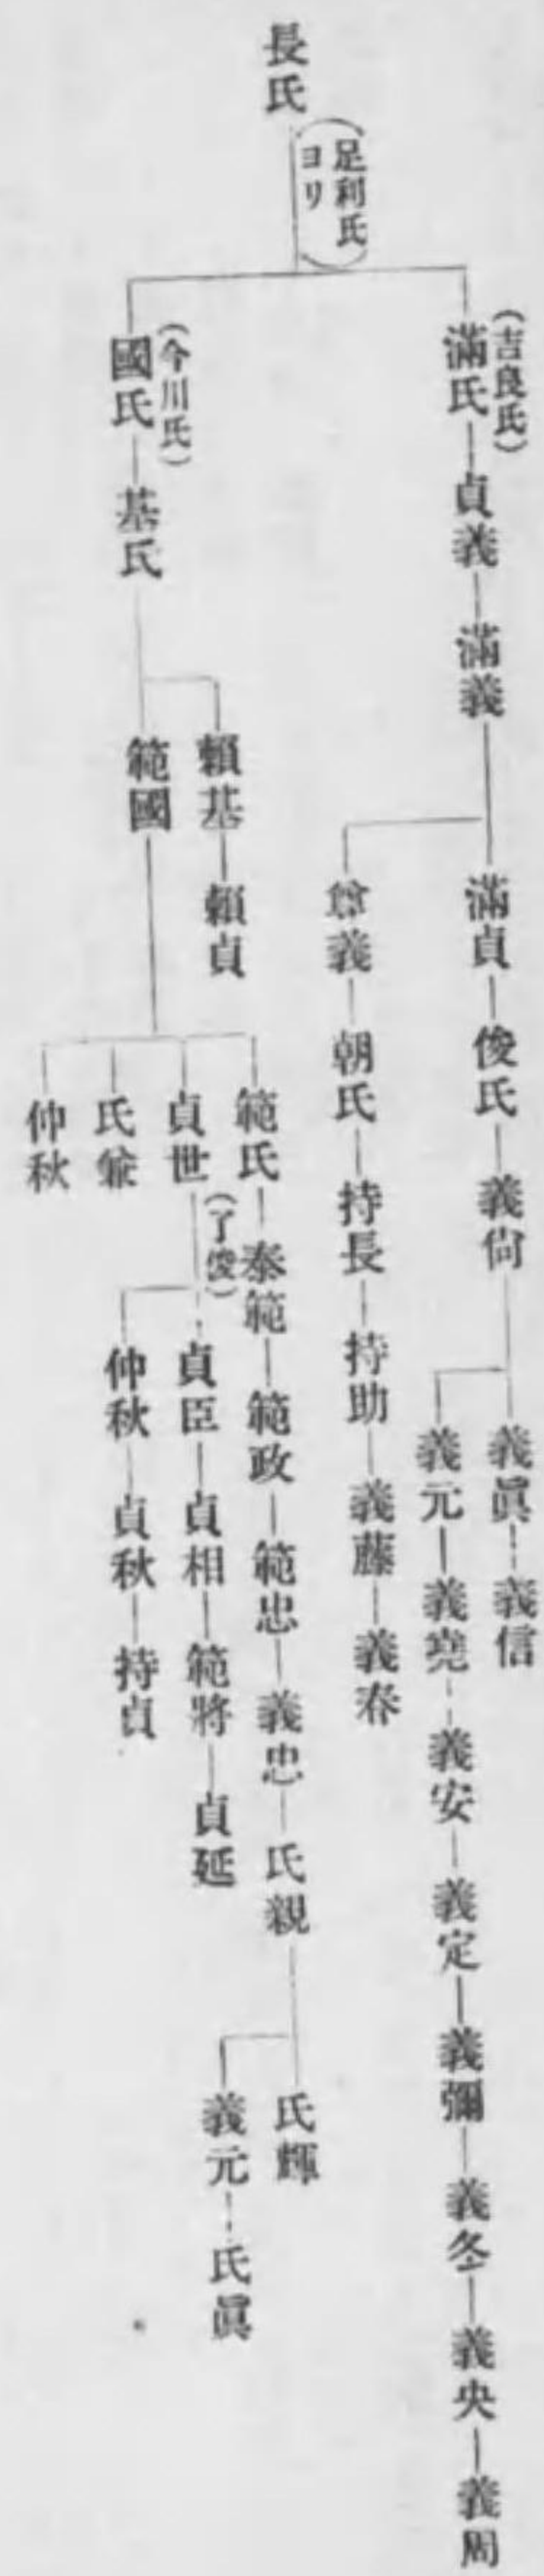 長氏
(足利氏ヨリ)
(吉良氏)
滿氏―貞義―滿義
滿貞―俊氏―義尙
義眞―義信
義元―義堯―義安―義定―義彌―義冬―義央―義周
義―朝氏―持長―持助―義藤―義春
(今川氏)
國氏―基氏
賴基―賴貞
範國
範氏―泰範―範政―範忠―義忠―氏親
氏輝
義元―氏眞
貞世(了俊)
貞臣―貞相―範將―貞延
仲秋―貞秋―持貞
氏兼
仲秋